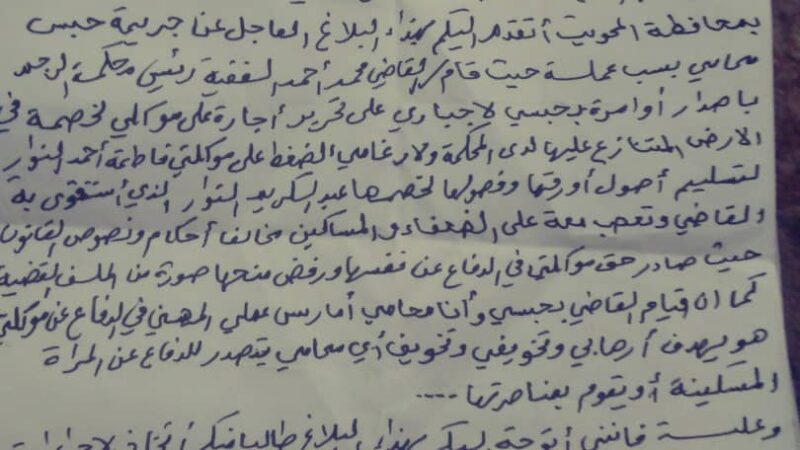 بمحافظة المحويت أتقدم اليكم بهذا البلاغ العاجل عن جريمة حبس
محامي بسبب عملة حيث قام القاضي محمد أحمد الفقية رئيس محكمة الرجم
باصدار أوامرة بحبسي لاجباري على تحرير أجارة على موكلي لخصمة في
الارض المتنازع عليها لدى المحكمة ولارغامي الضغط على موكلتي فاطمة أحمد النوار
لتسليم أصول أورقها وفصولها لخصمها عبدالكريم النوار الذي أستقوى بة
القاضي وتعصب معة على الضعفاء والمساكين مخالف أحكام ونصوص القانون
حيث صادر حق موكلتي في الدفاع عن نفسها ورفض منحها صورة من الملف القضية
كما ان قيام القاضي بحبسي وأنا محامي أمارس عملي المهني في الدفاع عن موكلتي
هو يهدف أرهابي وتخويفي وتخويف أي محامي يتصدر للدفاع عن المرأة
المسكينة أو يقوم بمناصرتها ....
وعلية فانني أتوجة اليكم بهذا البلاغ طالبا منكم